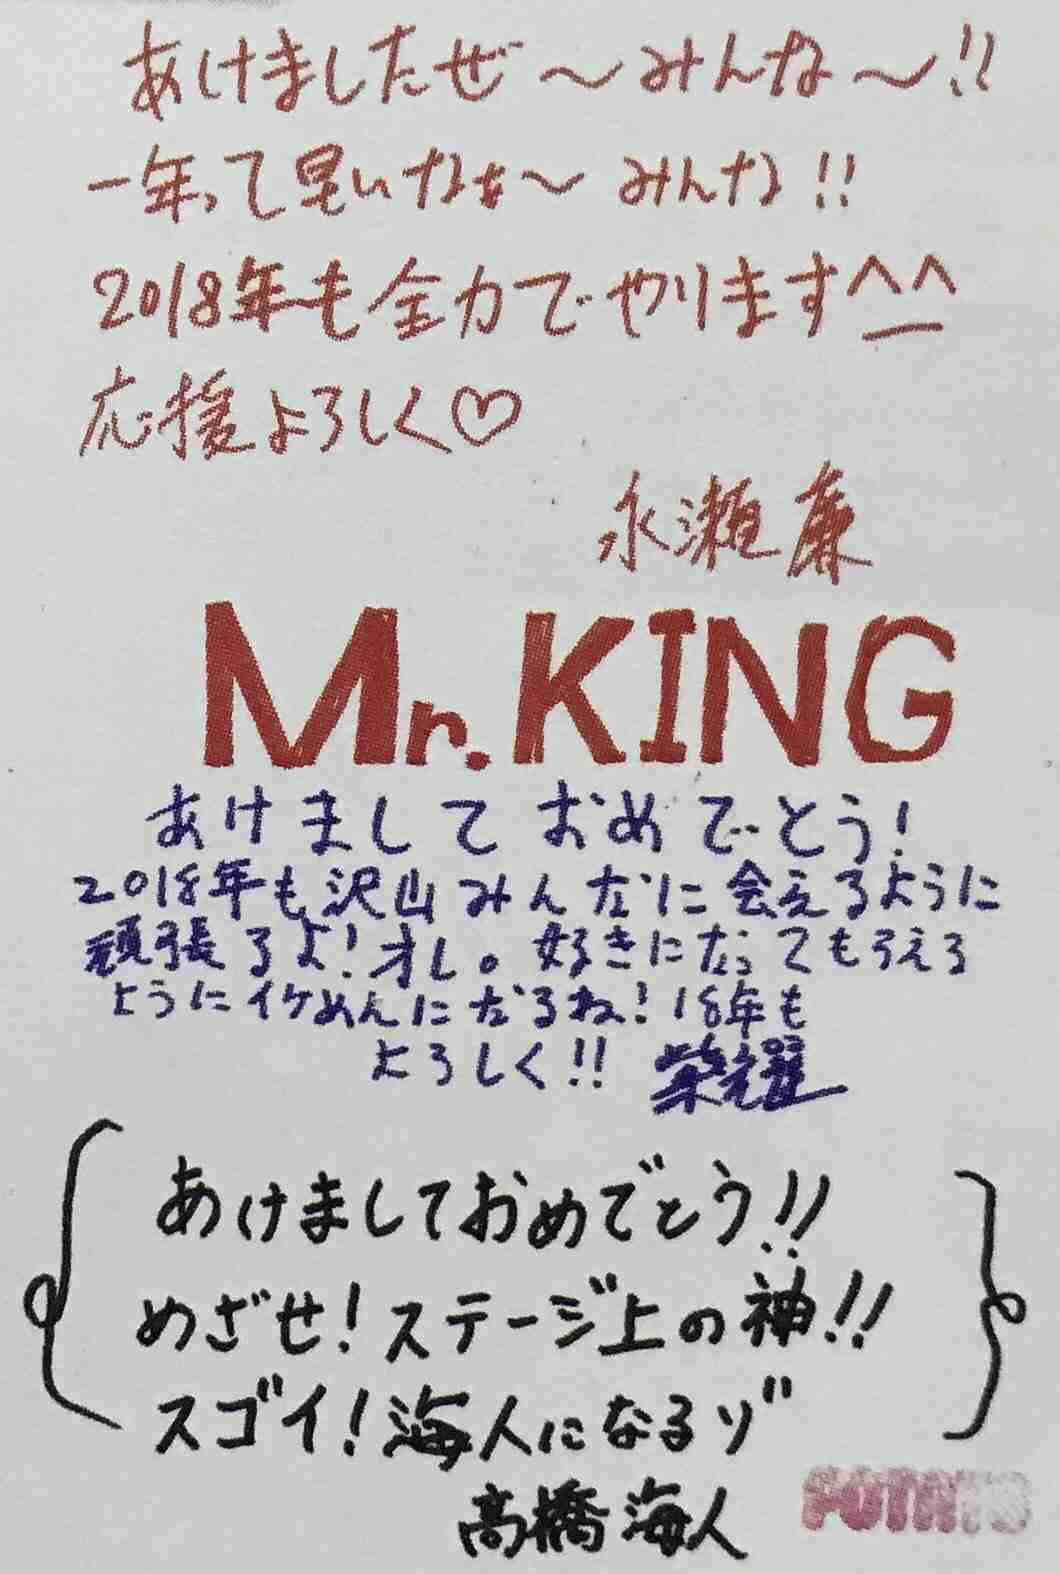 あけましたぜ〜みんな〜!!
一年って早いなぁ〜みんな!!
2018年も全力でやります^_^
応援よろしく♡
永瀬廉
Mr.KING
あけましておめでとう!
2018年も沢山みんなに会えるように
頑張るよ!オレ。好きになってもらえる
ようにイケめんになるね!18年も
よろしく!! 紫耀
あけましておめでとう!!
めざせ!ステージ上の神!!
スゴイ!海人になるゾ
髙橋海人
POTATO